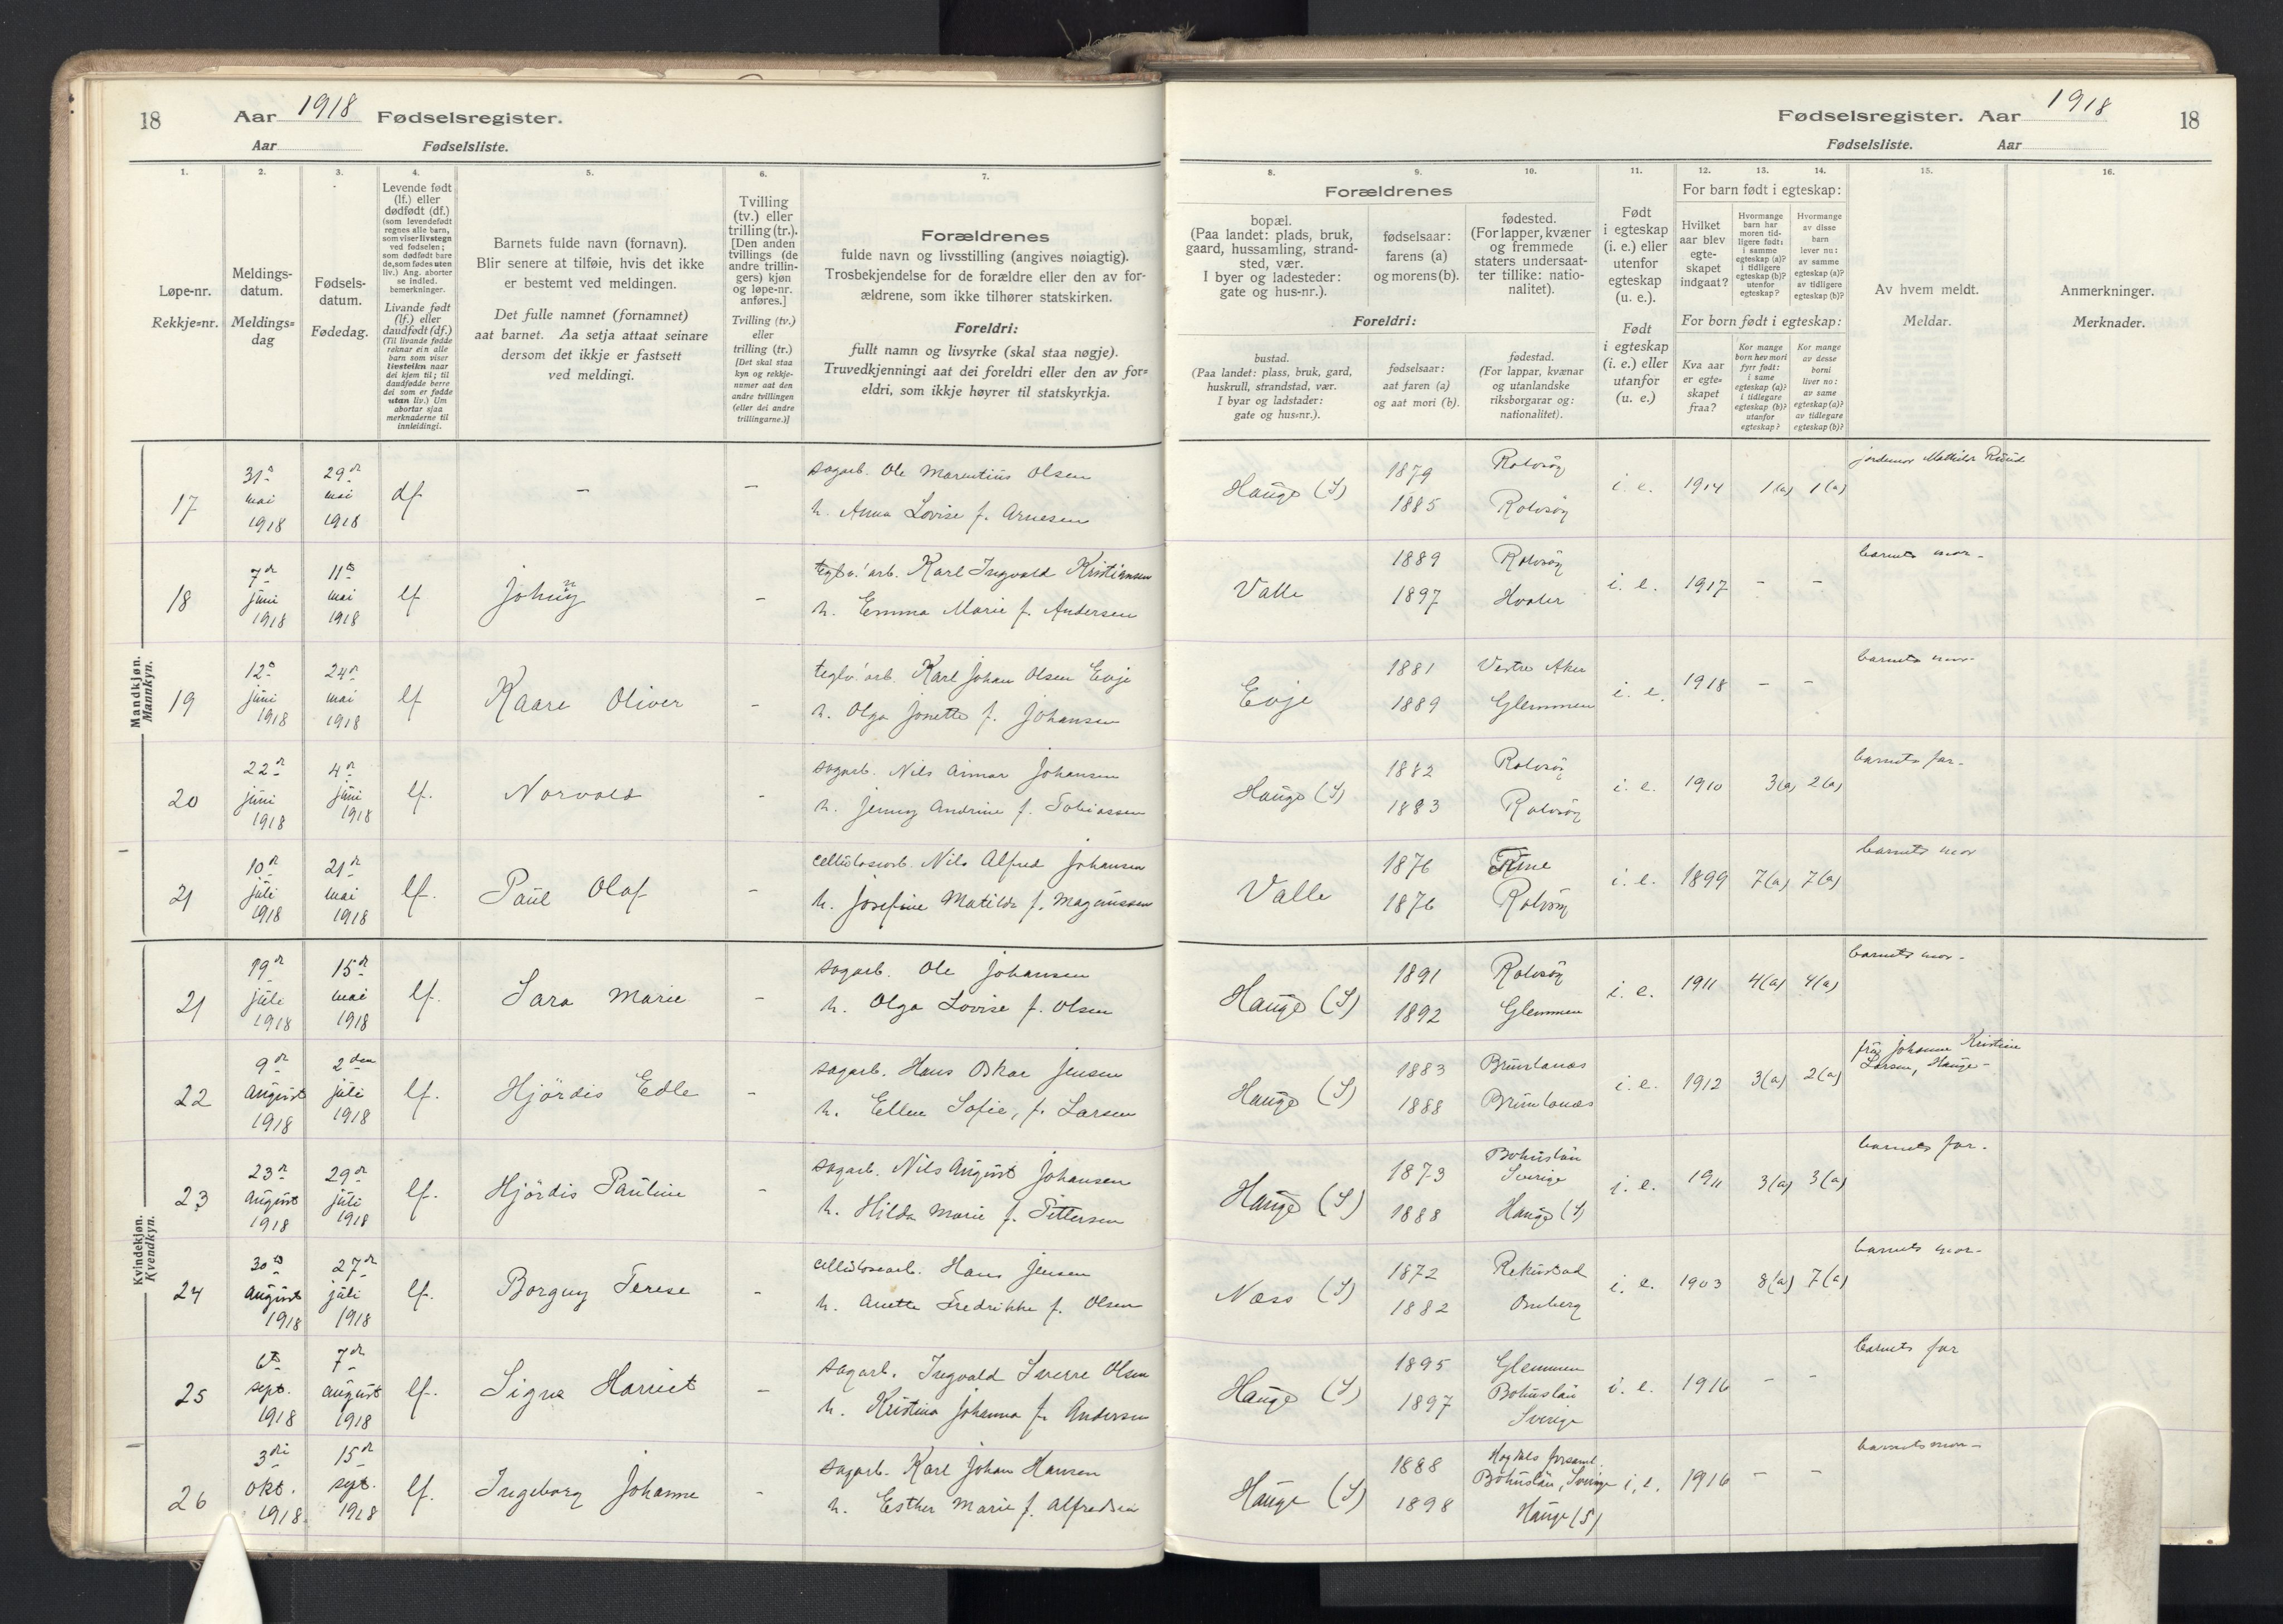 18
Aar 1918 Fødselsregister.
Aar Fødselsliste.
1.
Løpe-nr.
Rekkje=nr.
2.
Meldings-
datum.
Meldings=
dag
3.
Fødsels-
datum.
Fødedag.
4.
Levende født
(lf.) eller
dødfødt (df.)
(som levendefødt
regnes alle barn,
som viser livstegn
ved fødselen;
som dødfødt bare
de, som fødes uten
liv.) Ang. aborter
se indled.
bemerkninger.
Livande født
(lf.) eller
daudfødt (df.)
(Til livande fødde
reknar ein alle
barn som viser
livsteikn naar
dei kjem til; til
daudfødde berre
dei som er fødde
utan liv.) Um
abortar sjaa
merknaderne til
innleidingi.
5.
Barnets fulde navn (fornavn).
Blir senere at tilføie, hvis det ikke
er bestemt ved meldingen.
Det fulle namnet (fornamnet)
aat barnet. Aa setja attaat seinare
dersom det ikkje er fastsett
ved meldingi.
6.
Tvilling
(tv.) eller
trilling (tr.).
[Den anden
tvillings (de
andre trillin-
gers) kjøn
og løpe-nr.
anføres.]
Tvilling (tv.)
eller
trilling (tr.)
[Det skal staa
kyn og rekkje-
numer aat den
andre tvillingen
(eller dei andre
trillingarne.)]
7.
Forældrenes
fulde navn og livsstilling (angives nøiagtig).
Trosbekjendelse for de forældre eller den av for-
ældrene, som ikke tilhører statskirken.
Foreldri:
fullt namn og livsyrke (skal staa nøgje).
Truvedkjenningi aat dei foreldri eller den av for=
eldri, som ikkje høyrer til statskyrkja.
Fødselsregister. Aar 1918
18
Fødselsliste. Aar
8.
9.
10.
Forældrenes
bopæl.
(Paa landet: plads, bruk,
gaard, hussamling, strand-
sted, vær.
I byer og ladesteder:
gate og hus-nr.).
fødselsaar:
farens (a)
og morens (b).
fødested.
(For lapper, kvæner
og fremmede
staters undersaat-
ter tillike: natio-
nalitet).
Foreldri:
bustad.
(Paa landet: plass, bruk, gard,
huskrull, strandstad, vær.
I byar og ladstader:
gate og hus=nr.).
fødselsaar:
aat faren (a)
og aat mori (b).
fødestad.
(For lappar, kvænar
og utanlandske
riksborgarar og:
nationalitet).
11.
Født
i egteskap
(i. e.) eller
utenfor
egteskap
(u. e.).
Født
i egteskap
(i. e.) eller
utanfor
(u. e.)
12.
13.
14.
For barn født i egteskap:
Hvilket
aar blev
egte-
skapet
indgaat?
Hvormange
barn har
moren tid-
ligere født:
i samme
egteskap (a)?
i tidligere
egteskap (b)?
utenfor
egteskap?
Hvormange
av disse
barn
lever nu:
av samme
egteskap (a)?
av tidligere
egteskap (b)?
For born født i egteskap:
Kva aar
er egte=
skapet
fraa?
Kor mange
born hev mori
fyrr født:
i same
egteskap (a)?
i tidlegare
egteskap (b)?
utanfor
egteskap?
Kor mange
av desse
borni
liver no:
av same
egteskap (a)?
av tidlegare
egteskap (b)?
15.
Av hvem meldt.
Meldar.
16.
Anmerkninger.
Merknader.
Mandkjøn.
Mannkyn.
17 31te mai 1918 29de mai 1918 df - - sagarb. Ole Marentius Olsen
h. Anna Lovise f. Arnesen
Hauge (S) 1879 Rolvsøy i. e. 1914 1(a) 1(a) jordemor Mathilde
1885 Rolvsøy
18 7de juni 1918 11te mai 1918 lf Johny - teglv.arb. Karl Ingvald Kristiansen
h. Emma Marie f. Andersen
Valle 1889 Rolvsøy i. e. 1917 - - barnets mor-
1897 Hvaler
19 12te juni 1918 24de mai 1918 lf Kaare Oliver - teglv.arb. Karl Johan Olsen Evje
h. Olga Jonette f. Johansen
Evje 1881 Vestre Aker i. e. 1918 - - barnets mor-
1889 Glemmen
20 22de juni 1918 4de juni 1918 lf. Norvald - sagarb. Nils Aimar Johansen
h. Jenny Andrine f. Tobiassen
Hauge (S) 1882 Rolvsøy i. e. 1910 3(a) 2(a) barnets far-
1883 Rolvsøy
21 10de juli 1918 21de mai 1918 lf. Paul Olaf - cellulosearb. Nils Alfred Johansen
h. Josefine Matilde f. Magnussen
Valle 1876 i. e. 1899 7(a) 7(a) barnets mor
1876 Rolvsøy
Kvindekjøn.
Kvendkyn.
21 19de juli 1918 15de mai 1918 lf. Sara Marie - sagarb. Ole Johansen
h. Olga Lovise f. Olsen
Hauge (S) 1891 Rolvsøy i. e. 1911 4(a) 4(a) barnets mor-
1892 Glemmen
22 9de august 1918 2den juli 1918 lf. Hjördis Edle - sagarb. Hans Oskar Jensen
h. Ellen Sofie, f. Larsen
Hauge (S) 1883 Brunlanæs i. e. 1912 3(a) 2(a) fru Johanne Kristine
Larsen, Hauge-
1888 Brunlanæs
23 23de august 1918 29de juli 1918 lf. Hjördis Pauline - sagarb. Nils August Johansen
h. Hilda Marie f. Pettersen
Hauge (S) 1873 Bohuslän
Sverige i. e. 1911 3(a) 3(a) barnets far-
1888 Hauge (S)
24 30te august 1918 27de juli 1918 lf. Borgny Terese - cellulosearb. Hans Jensen
h. Anette Fredrikke f. Olsen
Næss (S) 1872 Rakkestad i. e. 1903 8(a) 7(a) barnets mor-
1882 Onsberg
25 6te sept. 1918 7de august 1918 lf. Signe Harriet - sagarb. Ingvald Sverre Olsen
h. Kristina Johanna f. Andersen
Hauge (S) 1895 Glemmen i. e. 1916 - - barnets far
1897 Bohuslän
Sverige
26 3die okt. 1918 15de sept. 1918 lf. Ingeborg Johanne - sagarb. Karl Johan Hansen
h. Esther Marie f. Alfredsen
Hauge (S) 1888 Hogdals forsaml.
Bohuslän, Sverige i. e. 1916 - - barnets mor-
1898 Hauge (S)